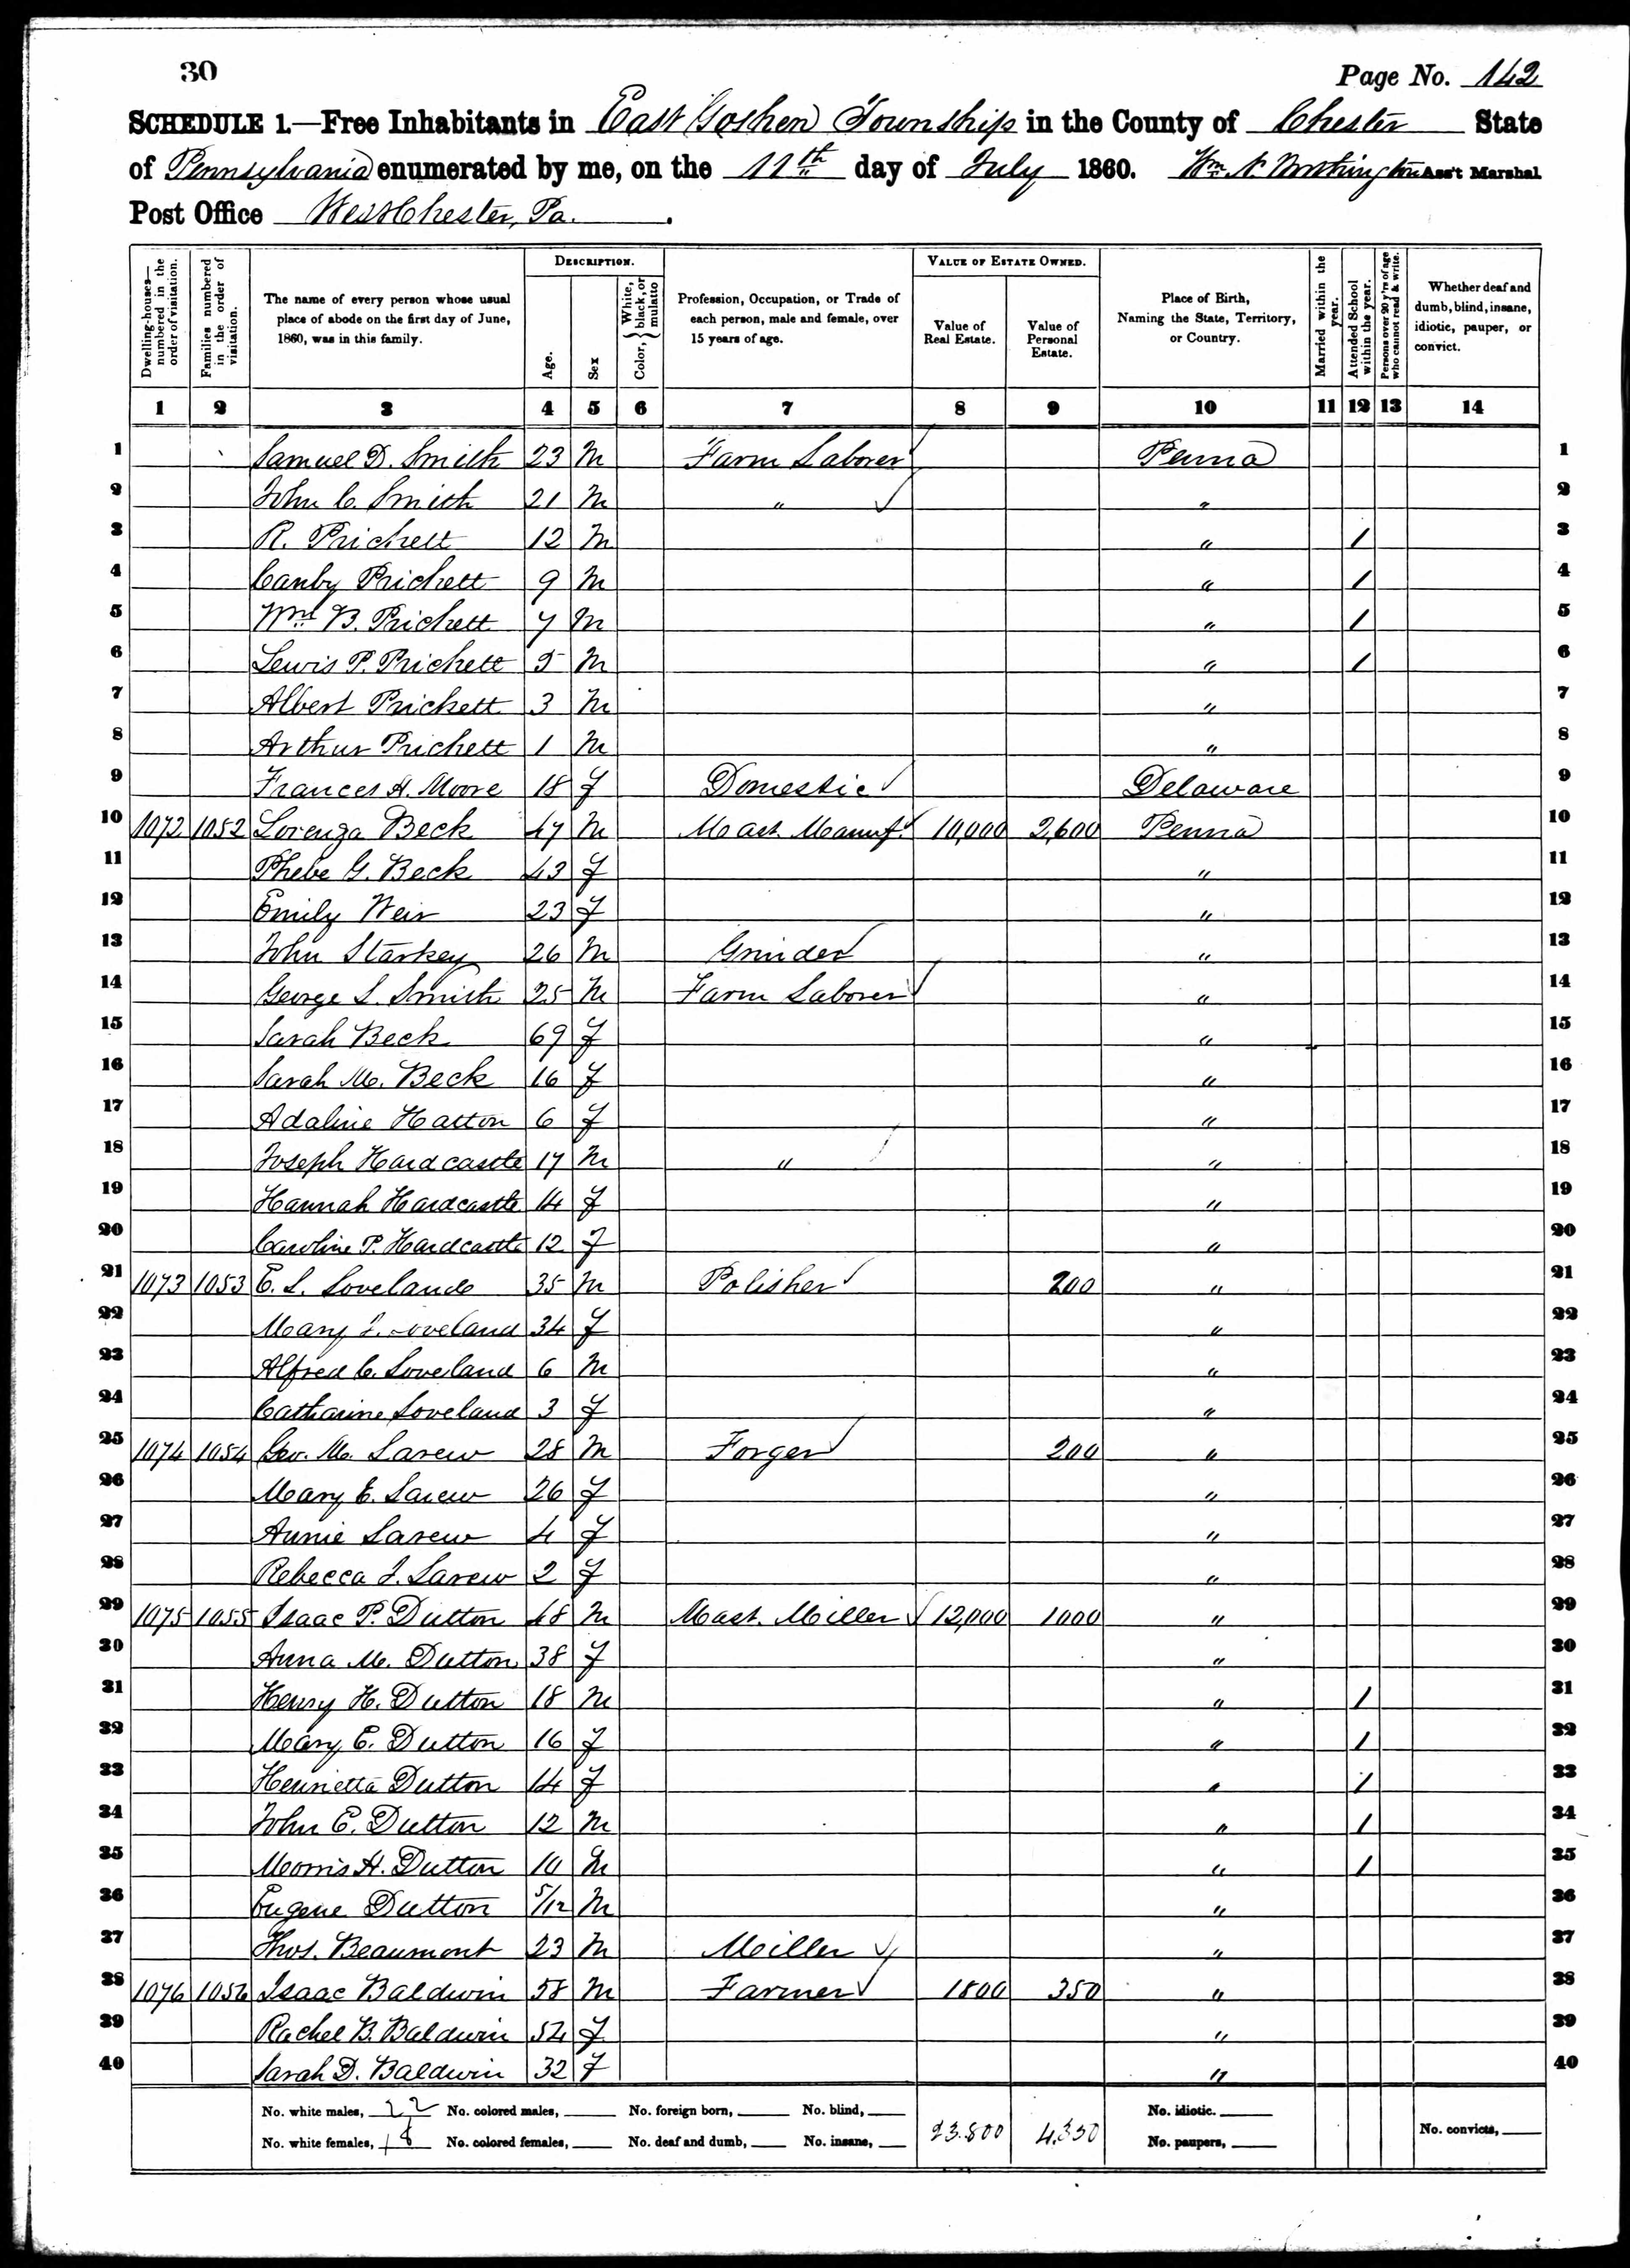 30
Page No. 142
SCHEDULE 1.—Free Inhabitants in East Goshen Township in the County of Chester State
of Pennsylvania enumerated by me, on the 11th day of July 1860. Wm Worthington Ass't Marshal
Post Office West Chester, Pa.
Dwelling-houses—numbered in the order of visitation.
Families numbered in the order of visitation.
The name of every person whose usual place of abode on the first day of June, 1860, was in this family.
DESCRIPTION.
Age.
Sex
Color, { White, black, or mulatto
Profession, Occupation, or Trade of each person, male and female, over 15 years of age.
VALUE OF ESTATE OWNED.
Value of Real Estate.
Value of Personal Estate.
Place of Birth, Naming the State, Territory, or Country.
Married within the year.
Attended School within the year.
Persons over 20 y'rs of age who cannot read & write.
Whether deaf and dumb, blind, insane, idiotic, pauper, or convict.
1 2 3 4 5 6 7 8 9 10 11 12 13 14
1 Samuel D. Smith 23 M Farm Laborer Penna 1
2 John C. Smith 21 M " " 2
3 R. Prichett 12 M " / 3
4 Canby Prichett 9 M " / 4
5 Wm B. Prichett 7 M " / 5
6 Lewis P. Prichett 5 M " / 6
7 Albert Prichett 3 M " 7
8 Arthur Prichett 1 M " 8
9 Frances A. Moore 18 F Domestic Delaware 9
10 1072 1052 Lorenza Beck 47 M Mast. Manuf. 10,000 2,600 Penna 10
11 Phebe G. Beck 43 F " 11
12 Emily Weir 23 F " 12
13 John Starkey 26 M Grinder " 13
14 George S. Smith 25 M Farm Laborer " 14
15 Sarah Beck 69 F " 15
16 Sarah M. Beck 16 F " 16
17 Adaline Hatton 6 F " 17
18 Joseph Hardcastle 17 M " " 18
19 Hannah Hardcastle 14 F " 19
20 Caroline P. Hardcastle 12 F " 20
21 1073 1053 E. S. Loveland 35 M Polisher 200 " 21
22 Mary J. Loveland 34 F " 22
23 Alfred C. Loveland 6 M " 23
24 Catharine Loveland 3 F " 24
25 1074 1054 Geo. M. Larew 28 M Forger 200 " 25
26 Mary E. Larew 26 F " 26
27 Annie Larew 4 F " 27
28 Rebecca J. Larew 2 F " 28
29 1075 1055 Isaac P. Dutton 48 M Mast. Miller 12,000 1000 " 29
30 Anna M. Dutton 38 F " 30
31 Henry H. Dutton 18 M " / 31
32 Mary E. Dutton 16 F " / 32
33 Henrietta Dutton 14 F " / 33
34 John E. Dutton 12 M " / 34
35 Morris H. Dutton 10 M " / 35
36 Eugene Dutton 5/12 M " 36
37 Thos. Beaumont 23 M Miller " 37
38 1076 1056 Isaac Baldwin 58 M Farmer 1800 350 " 38
39 Rachel B. Baldwin 54 F " 39
40 Sarah D. Baldwin 32 F " 40
No. white males, 22 No. colored males, No. foreign born, No. blind, 23.800 4.350 No. idiotic.
No. white females, 18 No. colored females, No. deaf and dumb, No. insane, No. paupers, No. convicts,